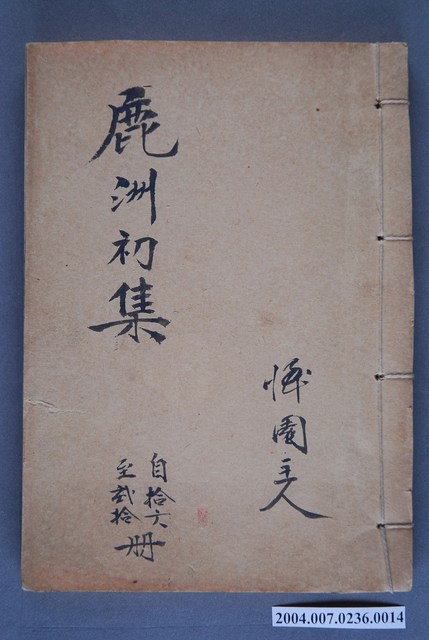 園主人
鹿洲初集
自拾六
至貳拾
册
2004.007.0236.0014